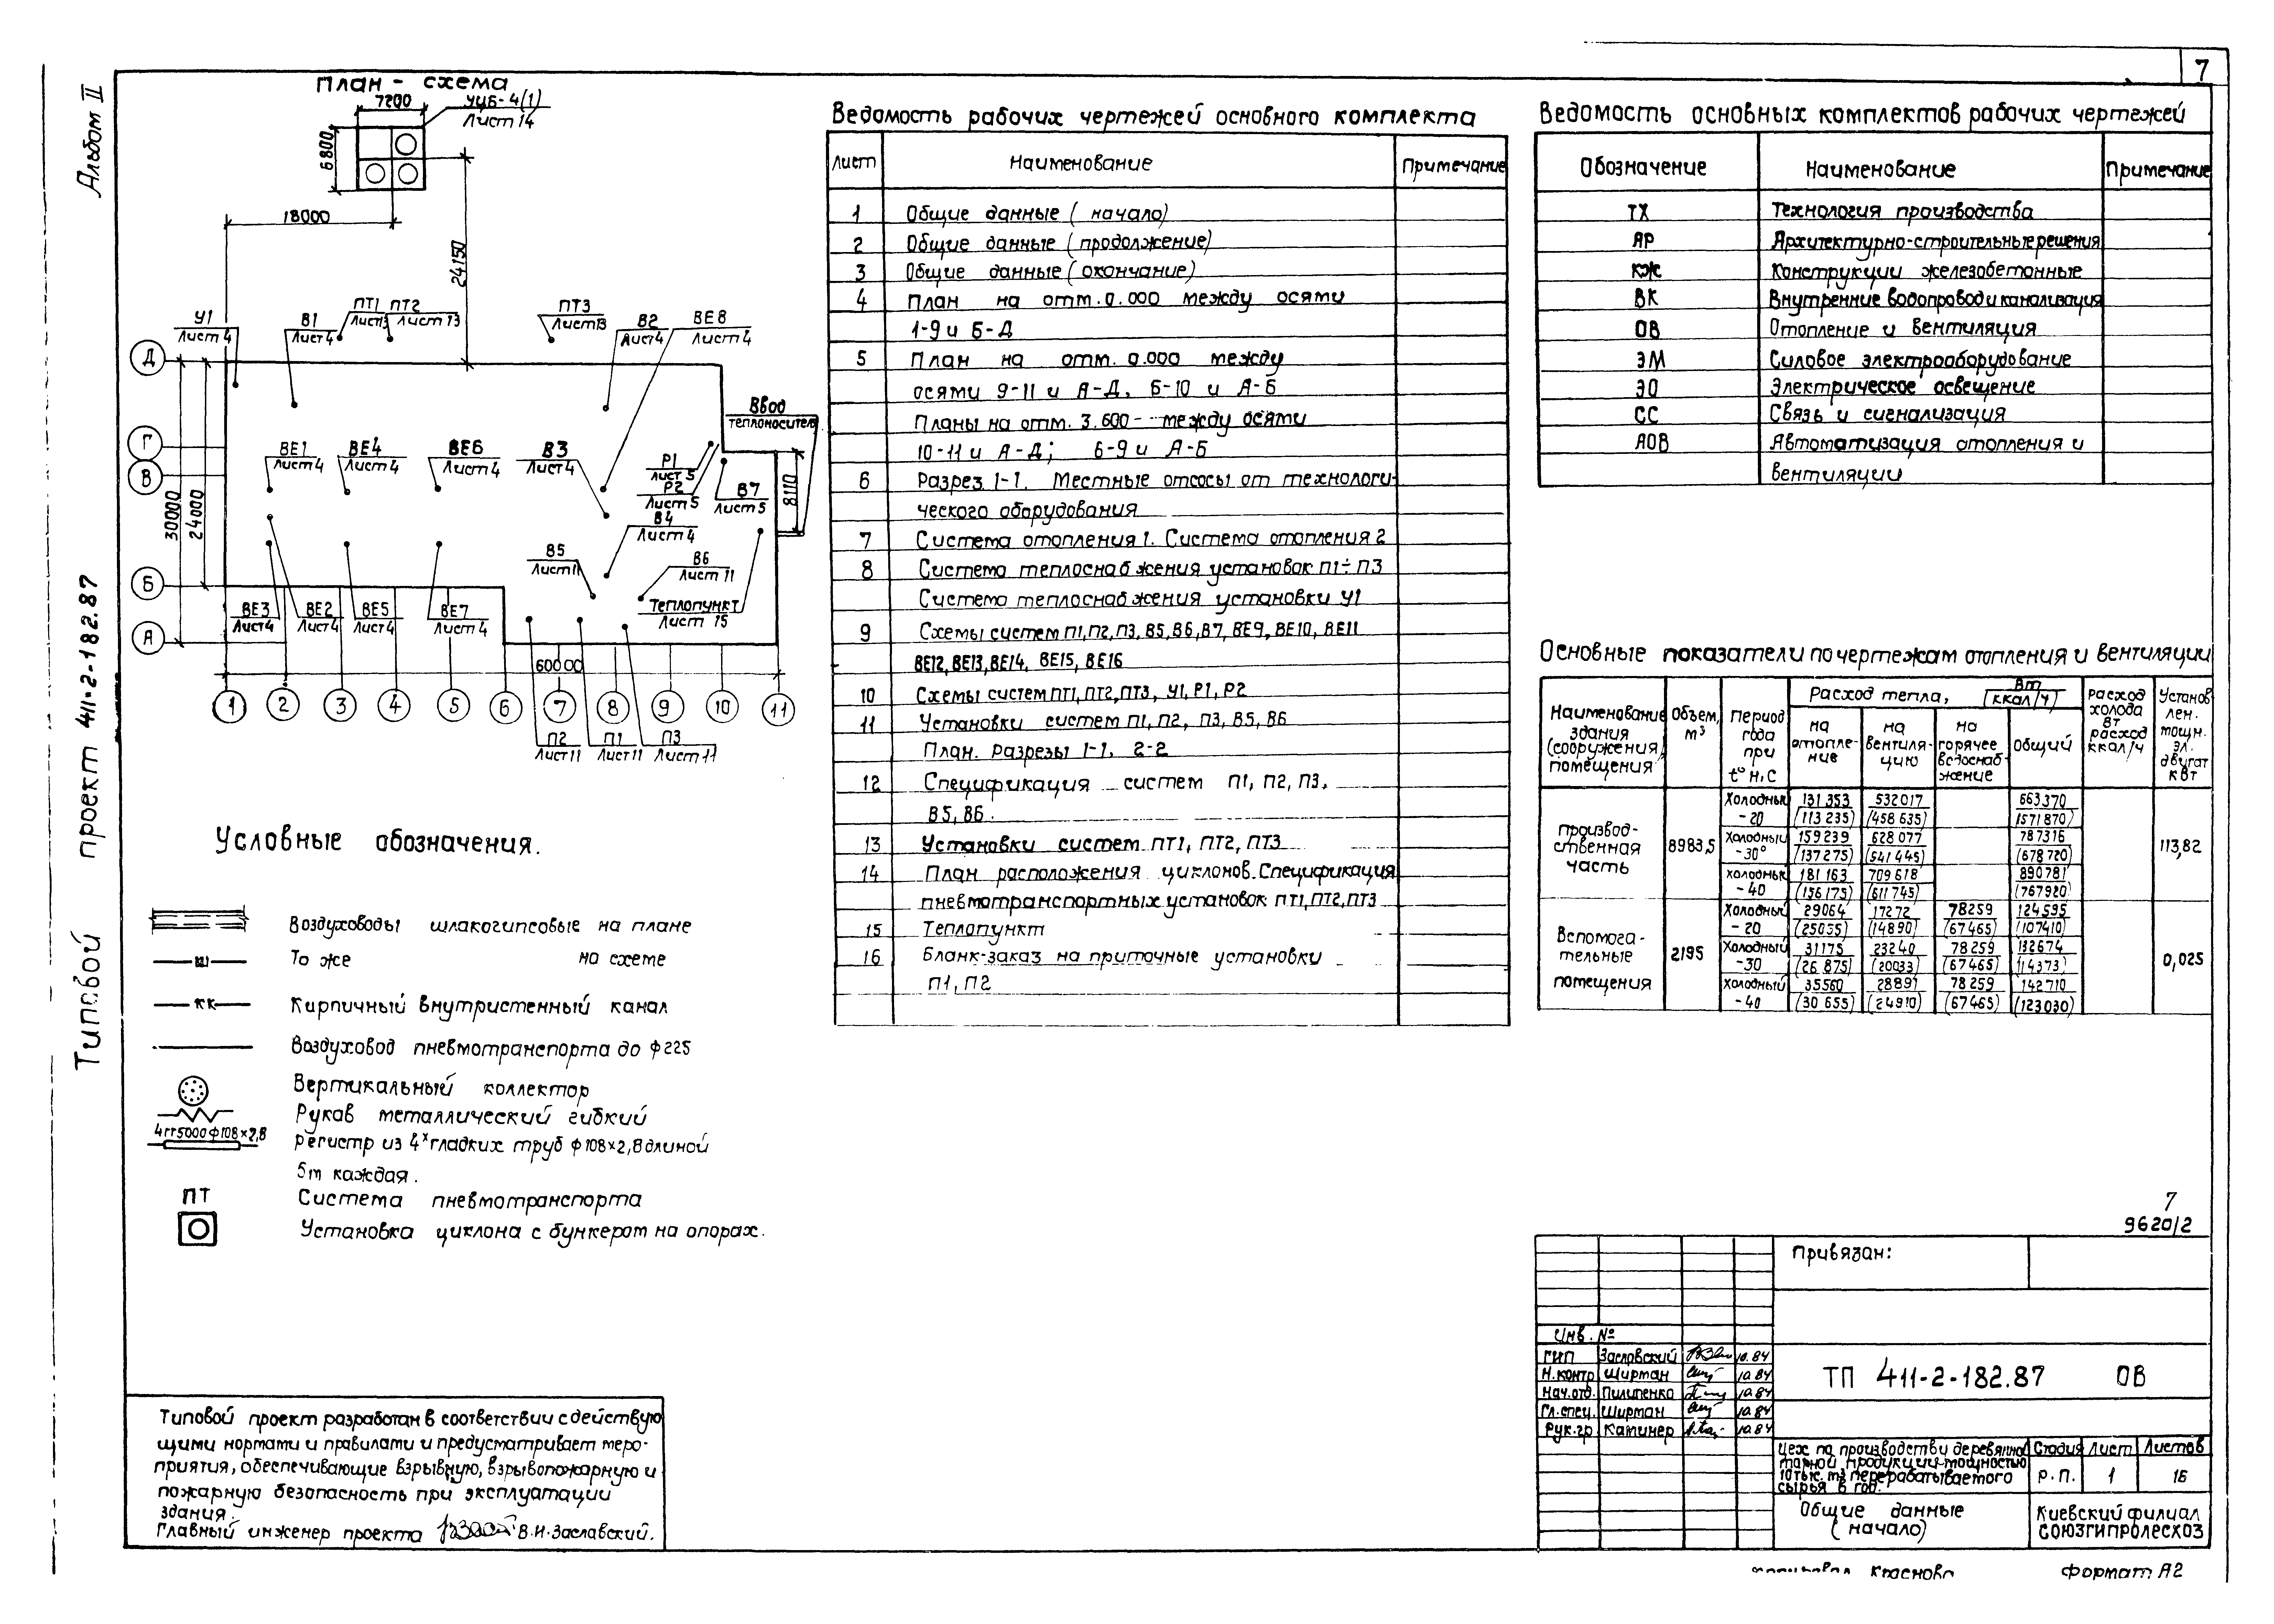 7
Альбом II
Типовой проект 411-2-182.87
План - схема
7200
УЦБ-4(1)
Лист 14
6800
18000
24150
У1
Лист 4
В1
Лист 4
ПТ1 ПТ2
Лист 13 Лист 13
ПТ3
Лист 13
В2
Лист 4
ВЕ8
Лист 4
Д
Г
В
Б
А
30000
24000
Ввод
теплоносителя
ВЕ1
Лист 4
ВЕ4
Лист 4
ВЕ6
Лист 4
В3
Лист 4
Р1
Лист 5
Р2
Лист 5
В7
Лист 5
8110
В4
Лист 4
В5
Лист 11
В6
Лист 11
Теплопункт
Лист 15
ВЕ3
Лист 4
ВЕ2
Лист 4
ВЕ5
Лист 4
ВЕ7
Лист 4
60000
1 2 3 4 5 6 7 8 9 10 11
П2
Лист 11
П1
Лист 11
П3
Лист 11
Условные обозначения.
Воздуховоды шлакогипсовые на плане
Ш То же на схеме
КК Кирпичный внутристенный канал
Воздуховод пневмотранспорта до ф225
Вертикальный коллектор
Рукав металлический гибкий
4гт5000ф108×2,8 Регистр из 4х гладких труб ф108×2,8 длиной
5м каждая.
ПТ Система пневмотранспорта
Установка циклона с бункером на опорах.
Типовой проект разработан в соответствии с действую
щими нормами и правилами и предусматривает меро-
приятия, обеспечивающие взрывную, взрывопожарную и
пожарную безопасность при эксплуатации
здания.
Главный инженер проекта В.И.Заславский.
Ведомость рабочих чертежей основного комплекта
Лист Наименование Примечание
1 Общие данные (начало)
2 Общие данные (продолжение)
3 Общие данные (окончание)
4 План на отм. 0.000 между осями
1-9 и Б-Д
5 План на отм. 0.000 между
осями 9-11 и А-Д, 6-10 и А-Б
Планы на отм. 3.600 - между осями
10-11 и А-Д; 6-9 и А-Б
6 Разрез 1-1. Местные отсосы от технологи-
ческого оборудования
7 Система отопления 1. Система отопления 2
8 Система теплоснабжения установок П1÷П3
Система теплоснабжения установки У1
9 Схемы систем П1, П2, П3, В5, В6, В7, ВЕ9, ВЕ10, ВЕ11
ВЕ12, ВЕ13, ВЕ14, ВЕ15, ВЕ16
10 Схемы систем ПТ1, ПТ2, ПТ3, У1, Р1, Р2
11 Установки систем П1, П2, П3, В5, В6
План. Разрезы 1-1, 2-2
12 Спецификация систем П1, П2, П3,
В5, В6.
13 Установки систем ПТ1, ПТ2, ПТ3
14 План расположения циклонов. Спецификация
пневмотранспортных установок ПТ1, ПТ2, ПТ3
15 Теплопункт
16 Бланк-заказ на приточные установки
П1, П2
Ведомость основных комплектов рабочих чертежей
Обозначение Наименование Примечание
ТХ Технология производства
АР Архитектурно-строительные решения
КЖ Конструкции железобетонные
ВК Внутренние водопровод и канализация
ОВ Отопление и вентиляция
ЭМ Силовое электрооборудование
ЭО Электрическое освещение
СС Связь и сигнализация
АОВ Автоматизация отопления и
вентиляции
Основные показатели по чертежам отопления и вентиляции
Наименование здания (сооружения) помещения Объем, м³ Период года при t° н, С Расход тепла, Вт (ккал/ч) Расход холода Вт расход ккал/ч Установлен. мощн. эл. двигат кВт
на отопле-ние на вентиля-цию на горячее водоснаб-жение общий
Производ-ственная часть 8983,5 113,82
Холодный -20 131 353 (113 235) 532 017 (458 635) 663 370 (571 870)
Холодный -30° 159 239 (137 275) 628 077 (541 445) 787 316 (678 720)
Холодный -40 181 163 (156 175) 709 618 (611 745) 890 781 (767 920)
Вспомога-тельные помещения 2195 0,025
Холодный -20 29064 (25055) 17272 (14890) 78259 (67465) 124595 (107410)
Холодный -30 31175 (26 875) 23240 (20033) 78259 (67465) 132674 (114373)
Холодный -40 35560 (30 655) 28891 (24910) 78259 (67465) 142710 (123030)
7
9620/2
Привязан:
Инв. №
ГИП Заславский 10.84
Н.контр Ширман 10.84
Нач.отд. Пилипенко 10.84
Гл.спец. Ширман 10.84
Рук.гр. Каминер 10.84
ТП 411-2-182.87 ОВ
Цех по производству деревянной
тарной продукции мощностью
10 тыс. м3 перерабатываемого
сырья в год.
Стадия Лист Листов
Р.П. 1 16
Общие данные
(начало)
Киевский филиал
СОЮЗГИПРОЛЕСХОЗ
Копировал Краснова
Формат А2